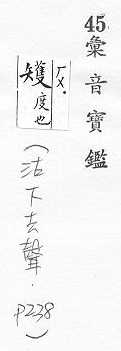 45彙音寶鑑
ㄏㄨ.
矱度也
(沽下去聲.P238)